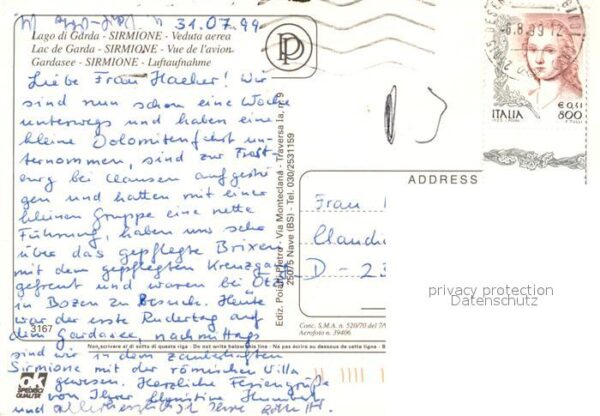 31.07.99
Lago di Garda - SIRMIONE - Veduta aerea
Lac de Garda - SIRMIONE - Vue de l'avion
Gardasee - SIRMIONE - Luftaufnahme
Liebe Frau Hacker! Wir
sind nun schon eine Woche
unterwegs und haben eine
kleine Dolomitenfahrt unt-
ternommen, sind zur Trost-
burg bei Klausen aufgestie-
gen und hatten mit einer
kleinen Gruppe eine nette
Führung, haben uns sehr
über das gepflegte Brixen
mit dem gepflegten Kreuzgang
gefreut und waren bei Ötzi
in Bozen zu Besuch. Heute
war der erste Rudertag auf
dem Gardasee, nachmittags
sind wir in dem zauberhaften
Sirmione mit der römischen Villa
gewesen. Herzliche Feriengrüße
von Ihrer Christine
und
3167
Non scrivere al di sotto di questa riga - Do not write below this line - Ne pas écrire au dessous de cette ligne -
Traversa Ia, nr. 9
25075 Nave (BS) - Tel. 030/2531159
PP
-6.8.99 12
ITALIA
€ 0,41
800
ADDRESS
Frau
Claudia
D - 23
privacy protection
Datenschutz
Conc. S.M.A. n. 520/70 del
Aerofoto n. 39406